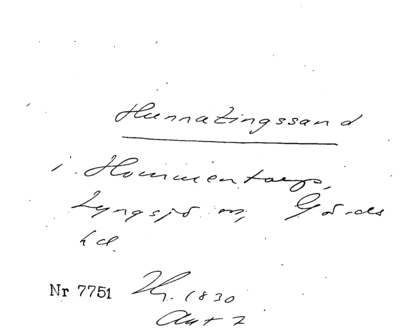 Hunnatingssand
i Hommentorp,
Lyngsjö sn, Gärds
hd
Nr 7751 Hg. 1830
Akt 7